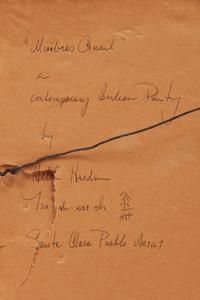 "Mimbres Quail"
a
contemporary Indian Pantg
by
Helen Hardin
Tsa-sah-wee-eh
Santa Clara Pueblo Artist